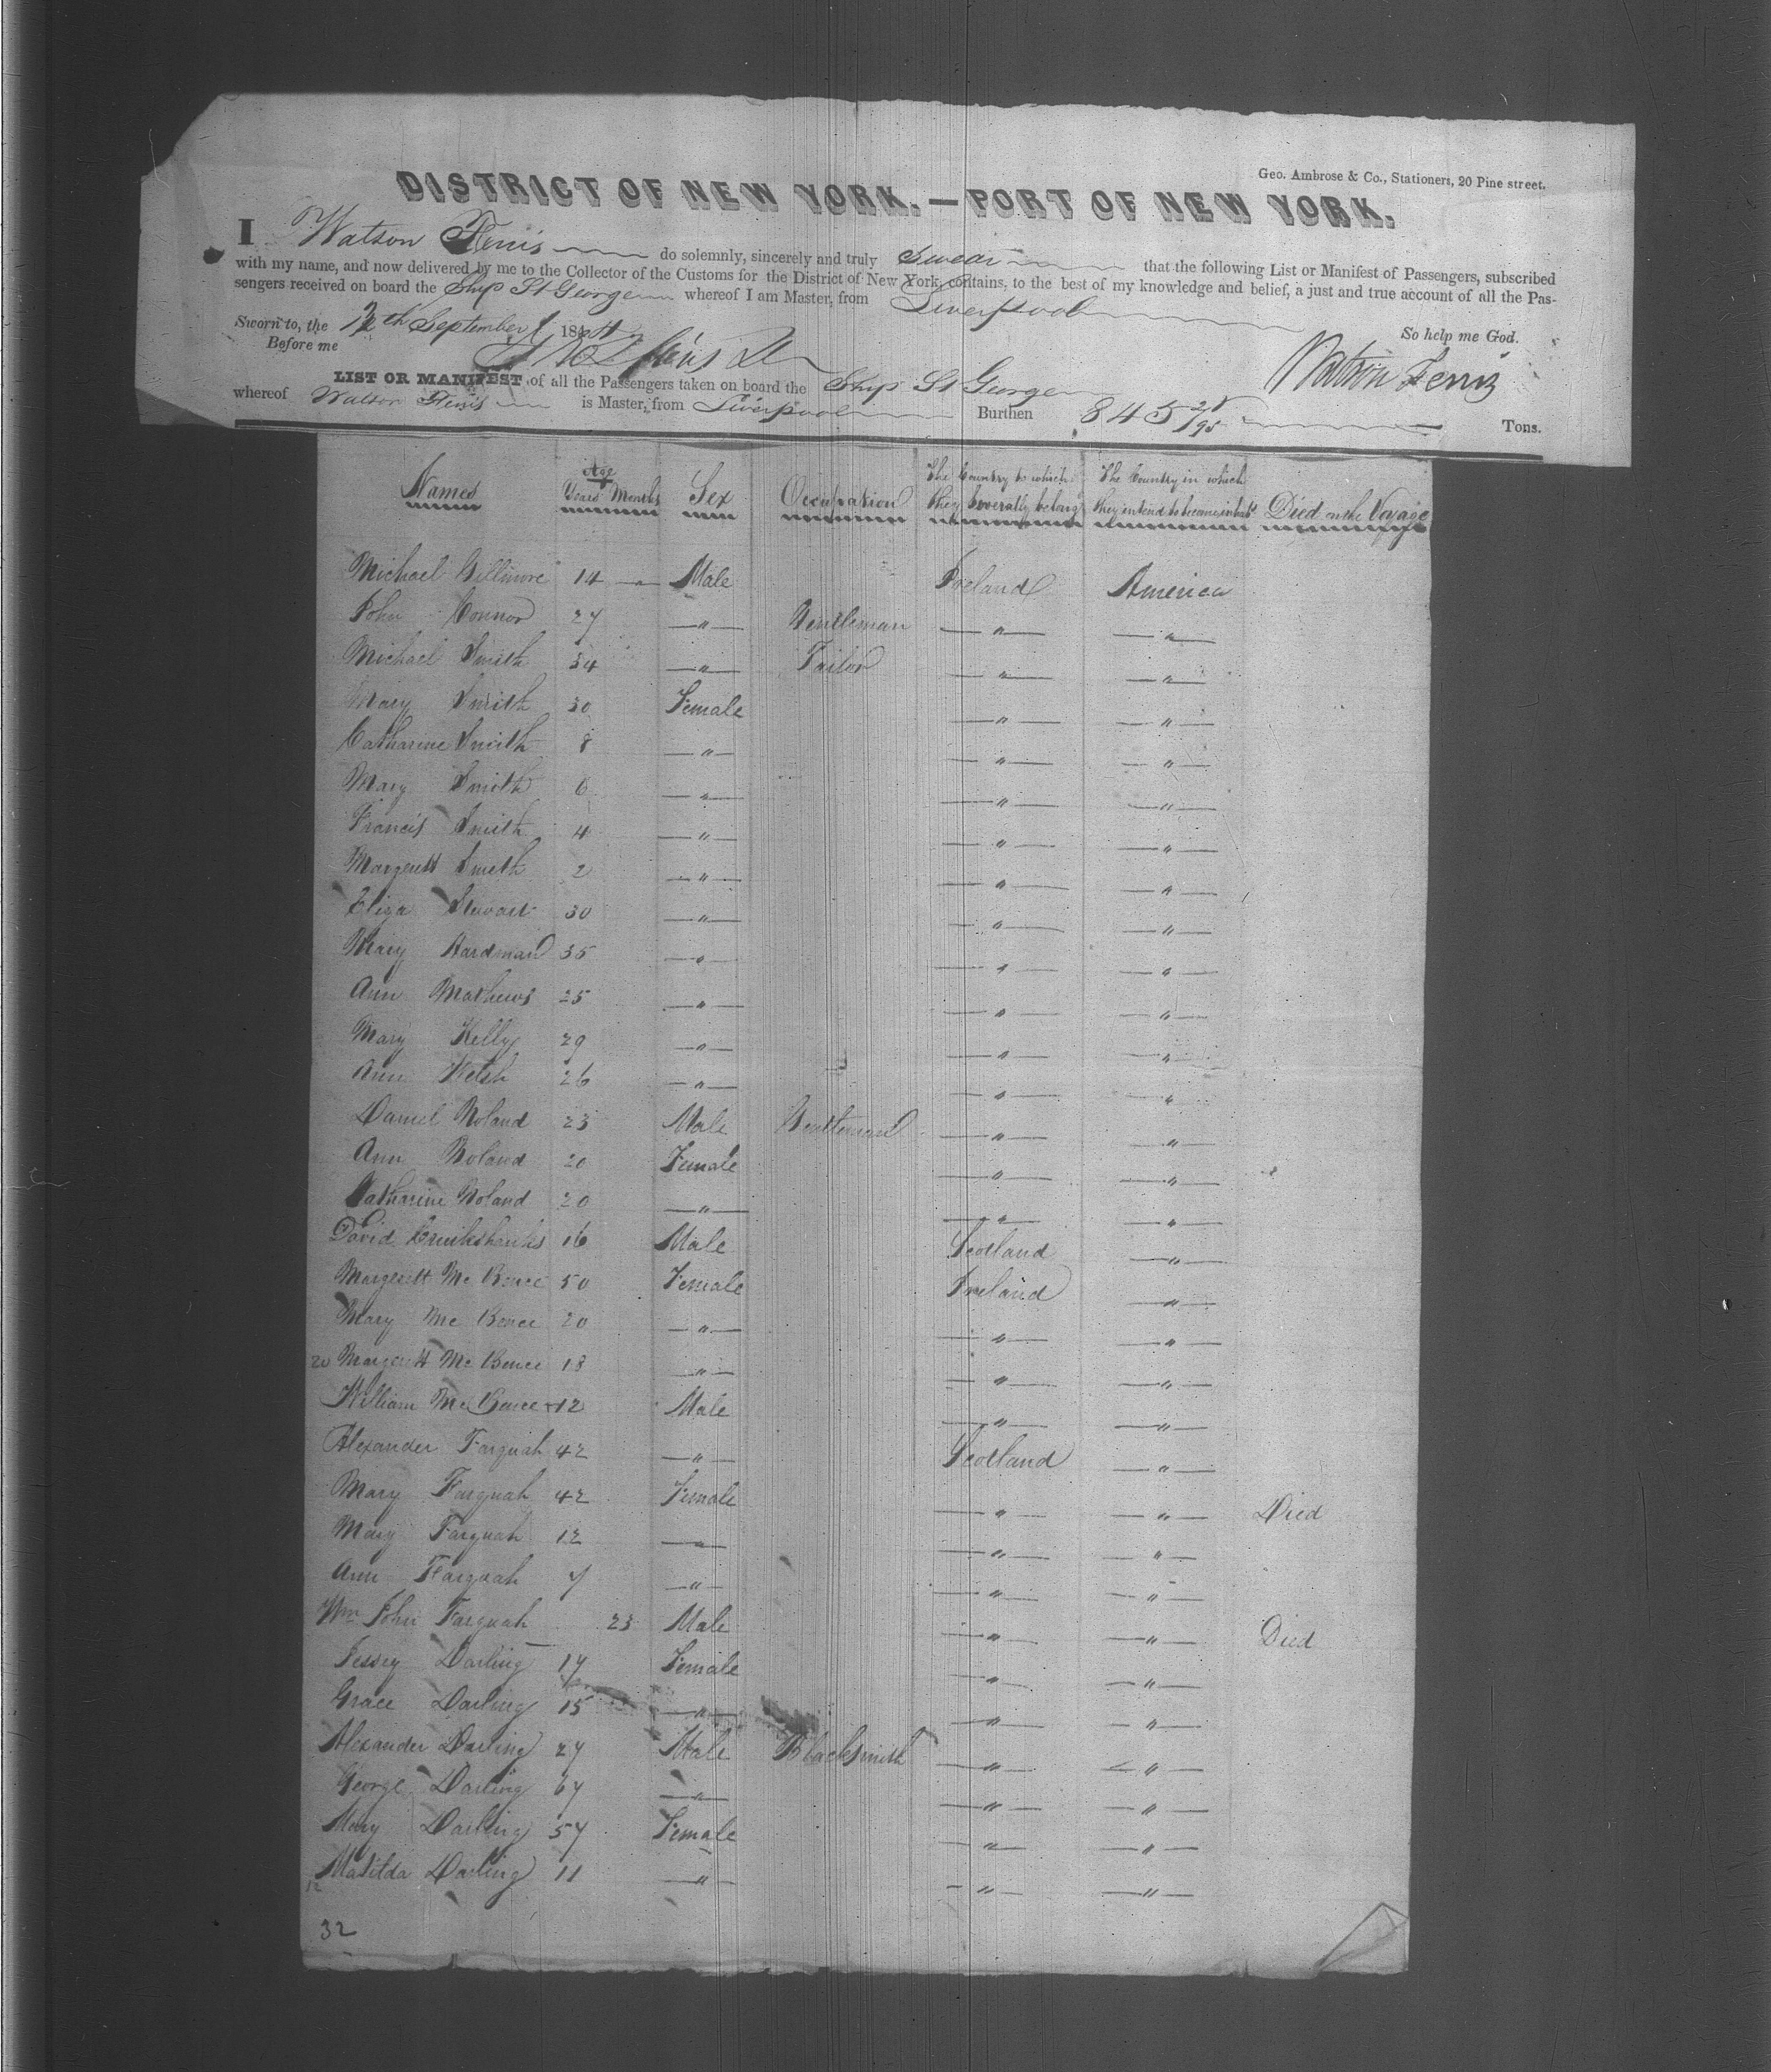 Geo. Ambrose & Co., Stationers, 20 Pine street.
DISTRICT OF NEW YORK.—PORT OF NEW YORK.
I Watson Ferris do solemnly, sincerely and truly Swear that the following List or Manifest of Passengers, subscribed
with my name, and now delivered by me to the Collector of the Customs for the District of New York, contains, to the best of my knowledge and belief, a just and true account of all the Pas-
sengers received on board the Ship St George whereof I am Master, from Liverpool
Sworn to, the 12th September 184 So help me God.
Before me Watson Ferris
LIST OR MANIFEST of all the Passengers taken on board the Ship St George
whereof Watson Ferris is Master, from Liverpool Burthen 845 28/95 Tons.
Names Age Years Months Sex Occupation The Country to which they severally belong The Country in which they intend to become inhabts Died on the Voyage
Michael Gillmore 14 — Male Ireland America
John Connor 27 — " — Gentleman — " — — " —
Michael Smith 34 — " — Tailor — " — — " —
Mary Smith 30 Female — " — — " —
Catharine Smith 8 — " — — " — — " —
Mary Smith 6 — " — — " — — " —
Francis Smith 4 — " — — " — — " —
Margerett Smith 2 — " — — " — — " —
Eliza Stewart 30 — " — — " — — " —
Mary Hardman 35 — " — — " — — " —
Ann Mathews 25 — " — — " — — " —
Mary Kelly 29 — " — — " — — " —
Ann Welsh 26 — " — — " — — " —
Daniel Noland 23 Male Gentleman — " — — " —
Ann Noland 20 Female — " — — " —
Catharine Noland 20 — " — — " — — " —
David Cruikshanks 16 Male Scotland — " —
Margerett Mc Bence 50 Female Ireland — " —
Mary Mc Bence 20 — " — — " — — " —
20 Margerett Mc Bence 18 — " — — " — — " —
William Mc Bence 12 Male — " — — " —
Alexander Farquah 42 — " — Scotland — " —
Mary Farquah 42 Female — " — — " — Died
Mary Farquah 12 — " — — " — — " —
Ann Farquah 7 — " — — " — — " —
Wm John Farquah 23 Male — " — — " — Died
Jessey Darling 17 Female — " — — " —
Grace Darling 15 — " — — " — — " —
Alexander Darling 27 Male Blacksmith — " — — " —
George Darling 67 — " — — " — — " —
Mary Darling 57 Female — " — — " —
Matilda Darling 11 — " — — " — — " —
12
32